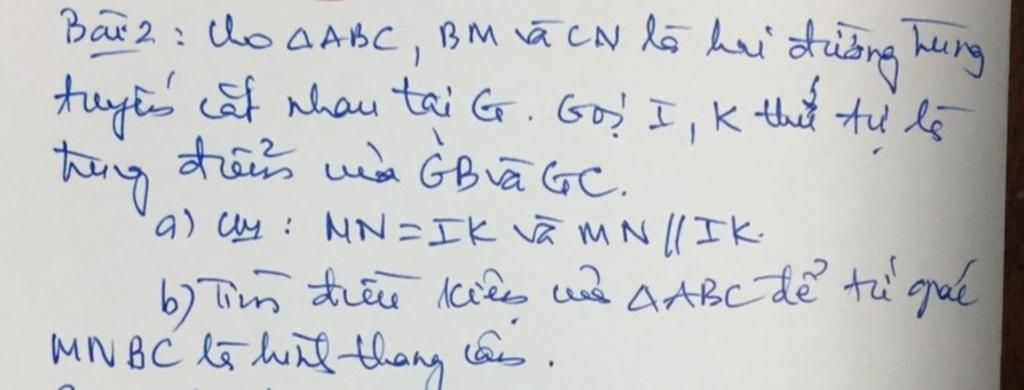 Bài 2 : Cho △ABC, BM và CN là hai đường trung
tuyến cắt nhau tại G. Gọi I, K thứ tự là
trung điểm của GB và GC.
a) CM : MN = IK và MN // IK.
b) Tìm điều kiện của △ABC để tứ giác
MNBC là hình thang cân.